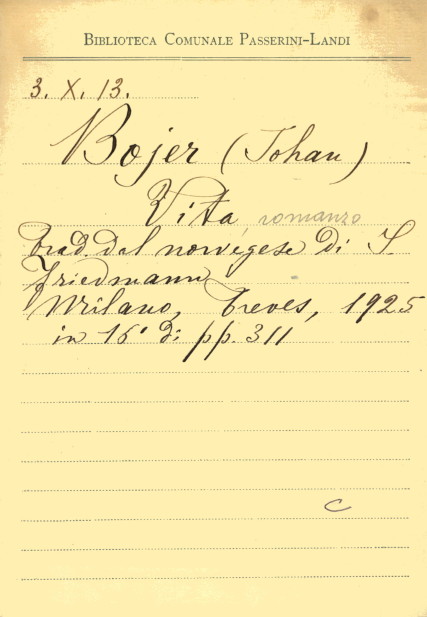 BIBLIOTECA COMUNALE PASSERINI-LANDI
3. X. 13.
Bojer (Johan)
Vita, romanzo
Trad. dal norvegese di S.
Friedmann
Milano, Treves, 1925
in 16° di pp. 311
C